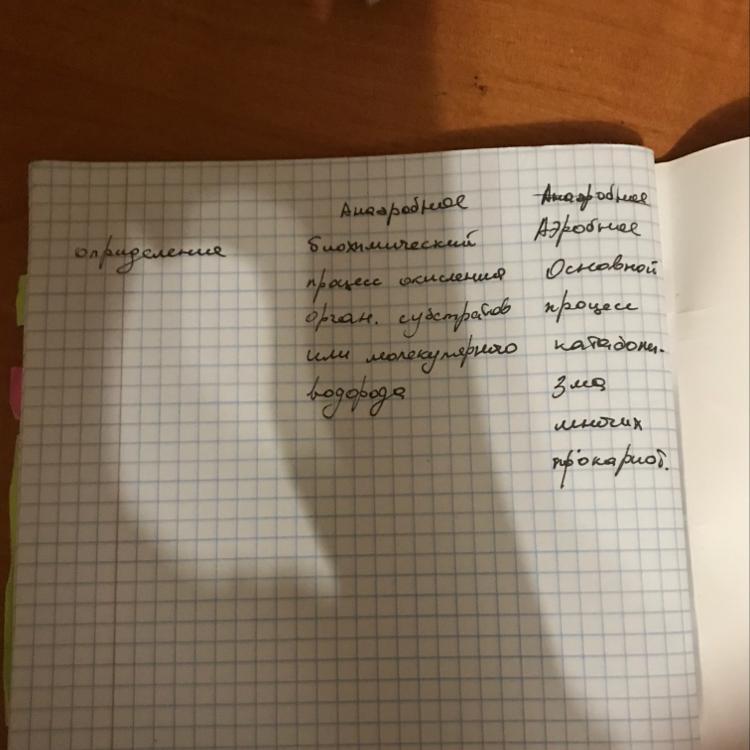 Анаэробное
Анаэробное
Аэробное
определение
биохимический
процесс окисления
орган. субстратов
или молекулярного
водорода
Основной
процесс
катаболи-
зма
многих
прокариот.